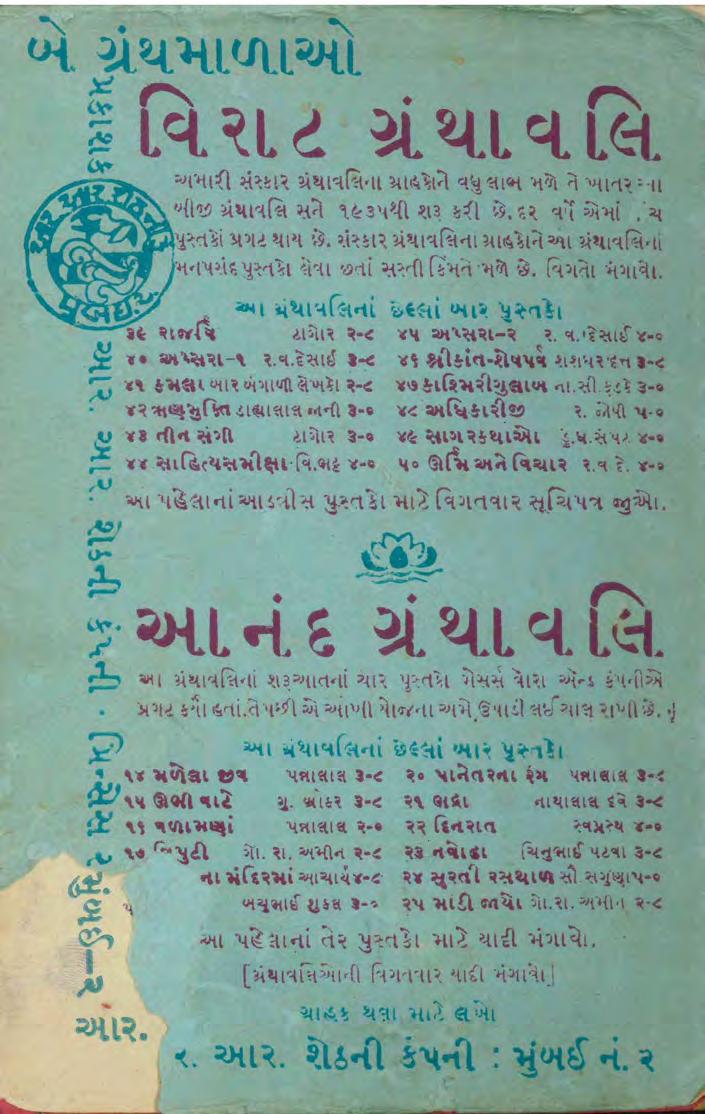 બે ગ્રંથમાળાઓ
વિરાટ ગ્રંથાવલિ
અમારી સંસ્કાર ગ્રંથાવલિના ગ્રાહકોને વધુ લાભ મળે તે ખાતર
બીજી ગ્રંથાવલિ સને ૧૯૩૫થી શરૂ કરી છે. દર વર્ષે એમાં
પુસ્તકો પ્રગટ થાય છે. સંસ્કાર ગ્રંથાવલિના ગ્રાહકોને આ ગ્રંથાવલિનાં
મનપસંદ પુસ્તકો લેવા છતાં સસ્તી કિંમતે મળે છે. વિગતો મંગાવો.
આ ગ્રંથાવલિનાં છેલ્લાં બાર પુસ્તકો
૩૯ રાજર્ષિ ટાગોર ૨-૮ ૪૫ અપ્સરા-૨ ર. વ. દેસાઈ ૪-૦
૪૦ અપ્સરા-૧ ર.વ.દેસાઈ ૩-૮ ૪૬ શ્રીકાંત-શેષપર્વ શશધર દત્ત ૩-૮
૪૧ કમલા બાર બંગાળી લેખકો ૨-૮ ૪૭ કાશ્મિરી ગુલાબ ના.સી.ફડકે ૩-૦
૪૨ ઋણમુક્તિ ડાહ્યાલાલ જાની ૩-૦ ૪૮ અધિકારીજી ર. જોષી ૫-૦
૪૩ તીન સંગી ટાગોર ૩-૦ ૪૯ સાગરકથાઓ ડું.ધ.સંપટ ૪-૦
૪૪ સાહિત્યસમીક્ષા વિ.ભટ્ટ ૪-૦ ૫૦ ઊર્મિ અને વિચાર ર.વ દે. ૪-૦
આ પહેલાનાં આડત્રીસ પુસ્તકો માટે વિગતવાર સૂચિપત્ર જુઓ.
આનંદ ગ્રંથાવલિ
આ ગ્રંથાવલિનાં શરૂઆતનાં ચાર પુસ્તકો મેસર્સ વોરા એન્ડ કંપનીએ
પ્રગટ કર્યાં હતાં. તે પછી એ આખી યોજના અમે ઉપાડી લઈ ચાલુ રાખી છે.
આ ગ્રંથાવલિનાં છેલ્લાં બાર પુસ્તકો
૧૪ મળેલા જીવ પન્નાલાલ ૩-૮ ૨૦ પાનેતરના રંગ પન્નાલાલ ૩-૮
૧૫ ઊભી વાટે ગુ. બ્રોકર ૩-૮ ૨૧ ભદ્રા નાથાલાલ દવે ૩-૮
૧૬ વળામણાં પન્નાલાલ ૨-૦ ૨૨ દિનરાત સ્વપ્નસ્થ ૪-૦
૧૭ ત્રિપુટી ગો. રા. અમીન ૨-૮ ૨૩ નવોઢા ચિનુભાઈ પટવા ૩-૮
ના મંદિરમાં આચાર્ય ૪-૮ ૨૪ સુરતી રસથાળ સૌ. સગુણા ૫-૦
બચુભાઈ શુકલ ૩-૦ ૨૫ માંડી જાયો ગો.રા.અમીન ૨-૮
આ પહેલાનાં તેર પુસ્તકો માટે યાદી મંગાવો.
[ગ્રંથાવલિઓની વિગતવાર યાદી મંગાવો]
ગ્રાહક થવા માટે લખો
ર. આર. શેઠની કંપની : મુંબઈ નં. ૨
પ્રકાશક
આર. આર. શેઠની કંપની · પ્રિન્સેસ સ મુંબઈ-૨
આર.
આર આર શેઠ ની કું
મુંબઈ